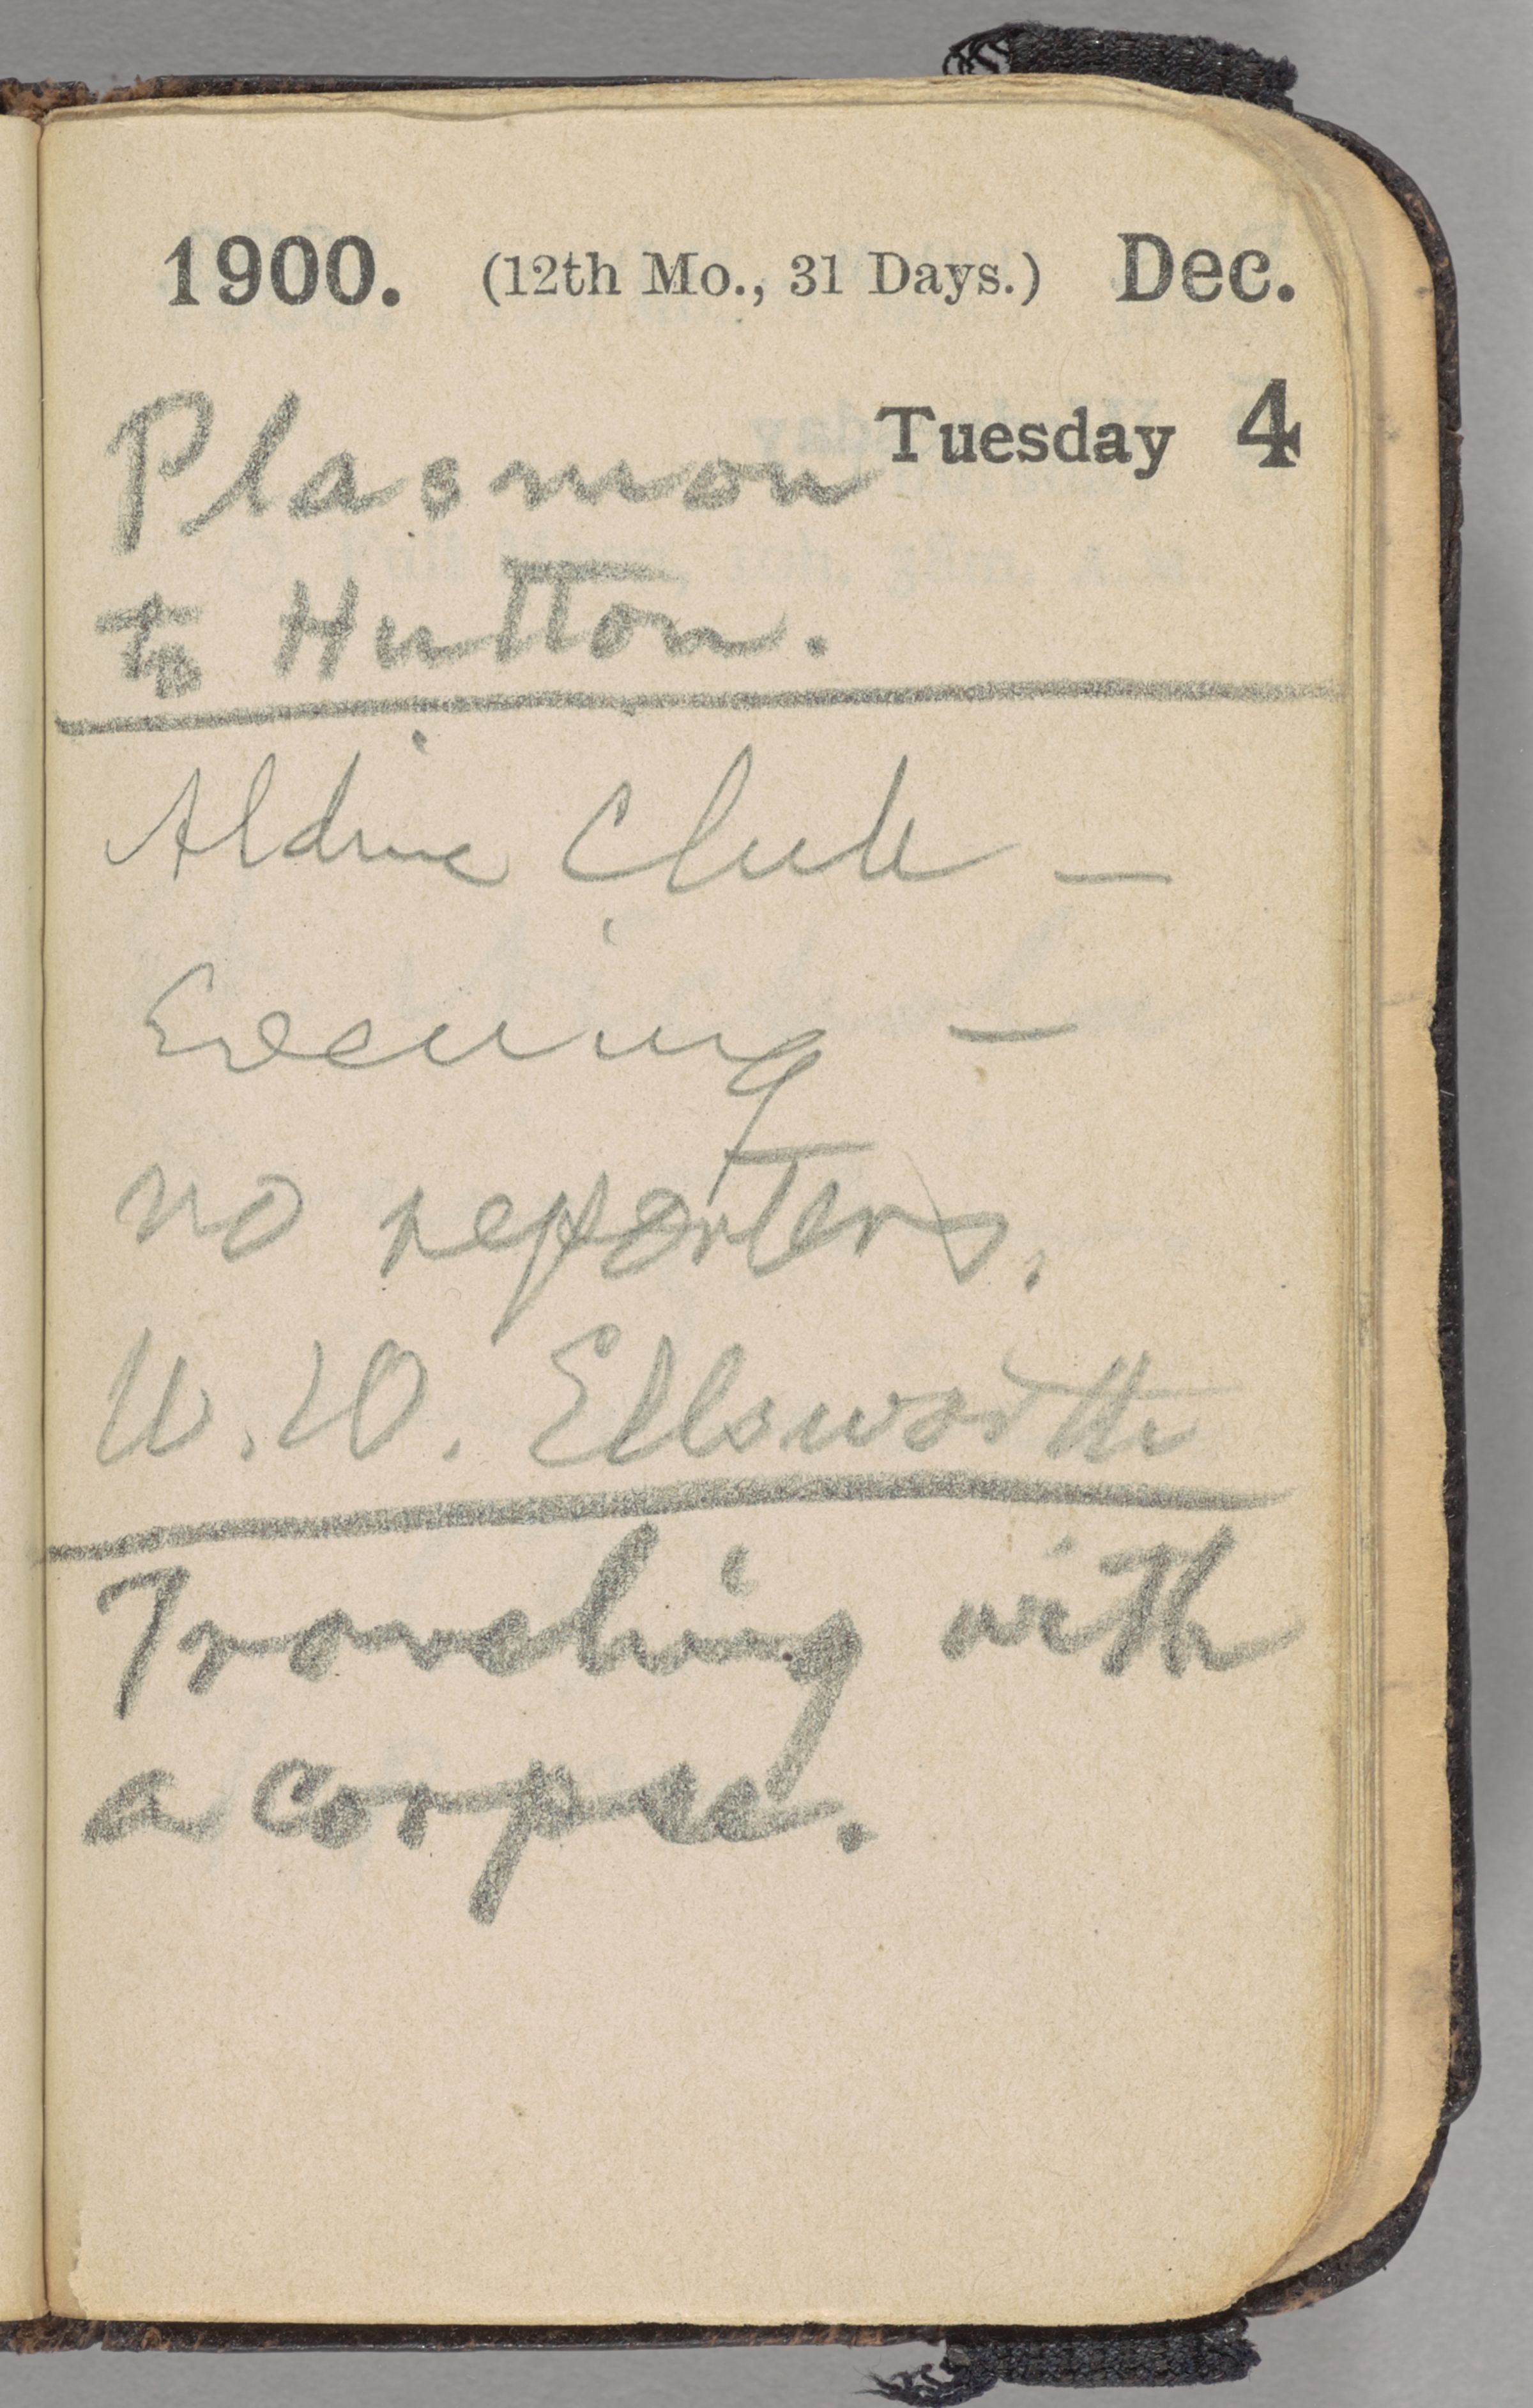 1900. (12th Mo., 31 Days.) Dec.
Tuesday 4
Plasmon
to Hutton.
Aldine Club —
Evening —
no reporters.
W. W. Ellsworth
Traveling with
a corpse.